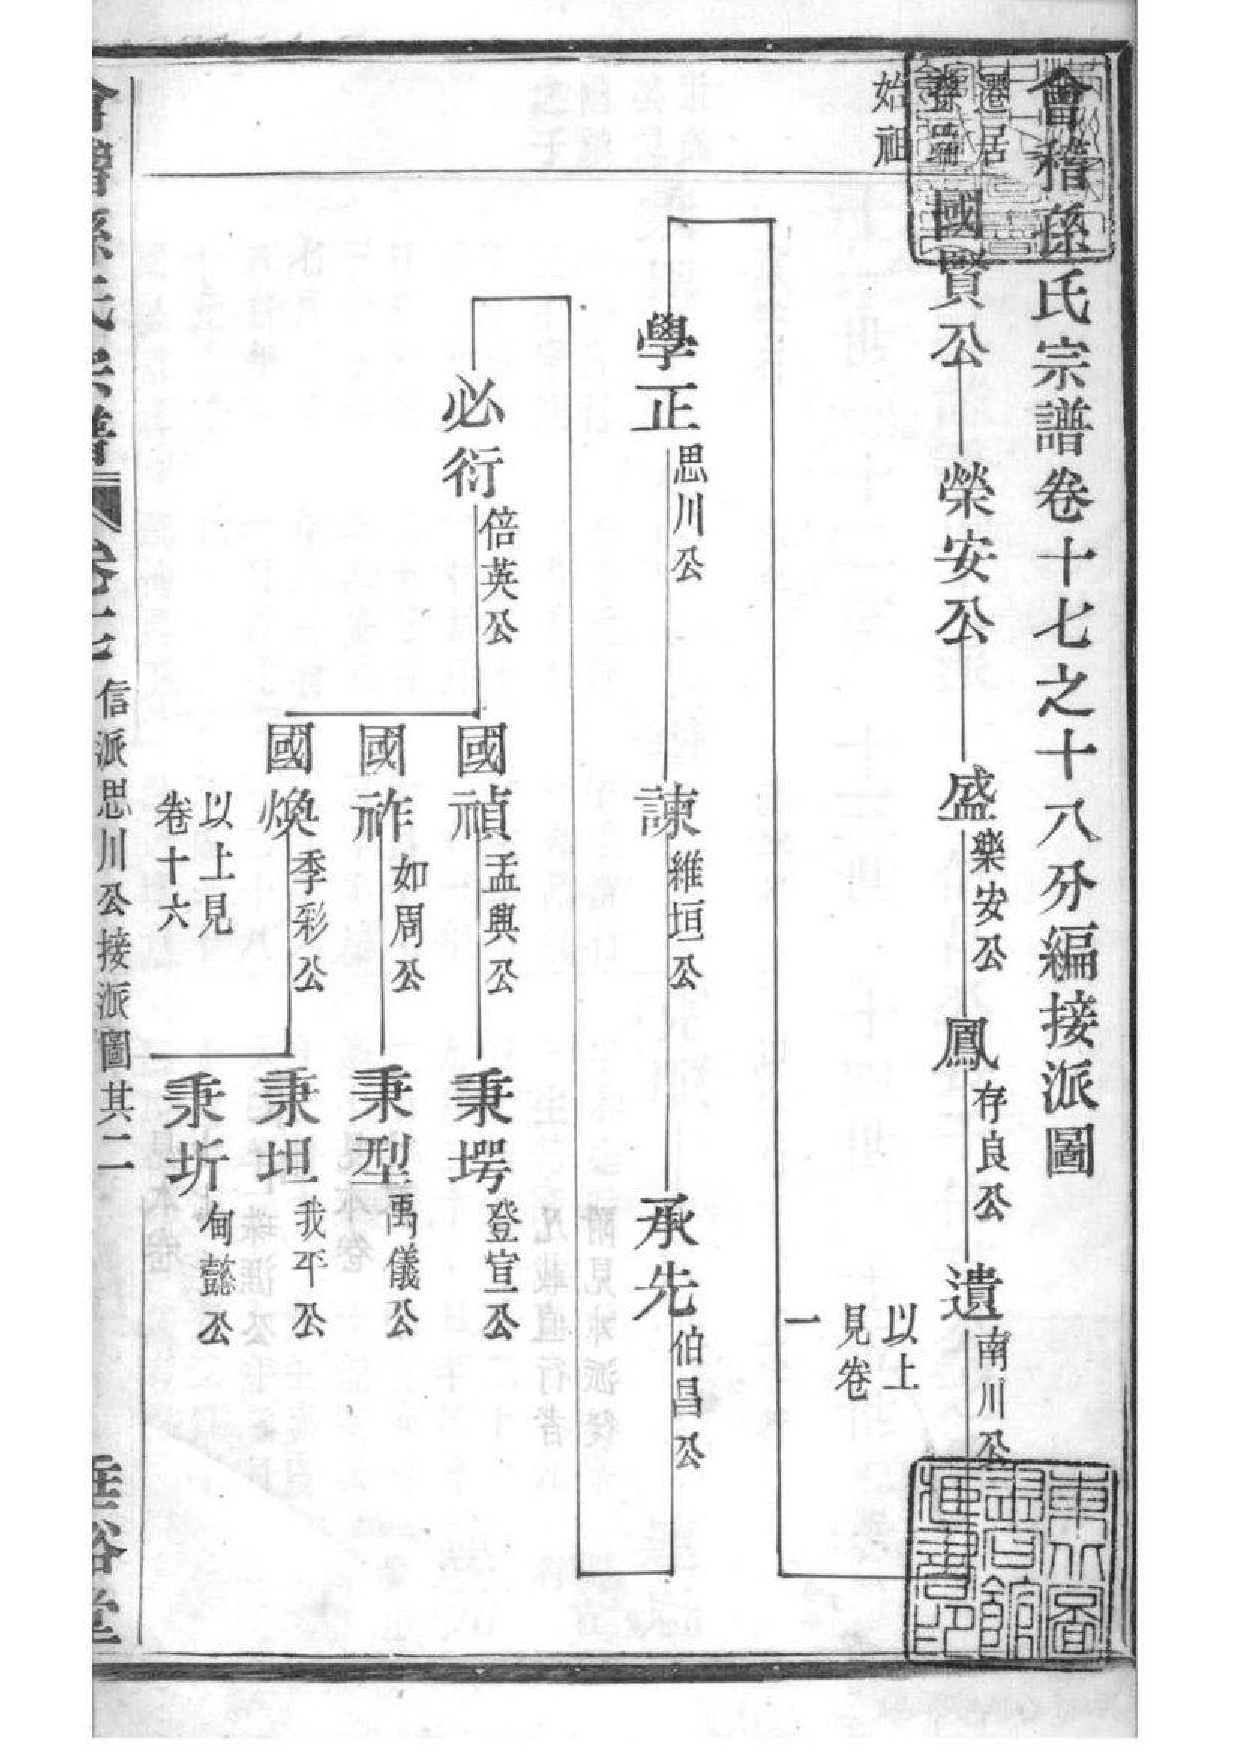 會稽孫氏宗譜卷十七之十八分編接派圖
遷居
孫
始祖
國賢公
榮安公
盛
樂安公
鳳
存良公
遺
南川公
以上
見卷
一
學正
思川公
諫
維垣公
承先
伯昌公
必衍
倍英公
國禎
孟典公
國祚
如周公
國煥
季彩公
以上見
卷十六
秉堮
登宣公
秉型
禹儀公
秉坦
我平公
秉圻
甸懿公
會稽孫氏宗譜
卷十七
信派思川公接派圖其二
垂裕堂